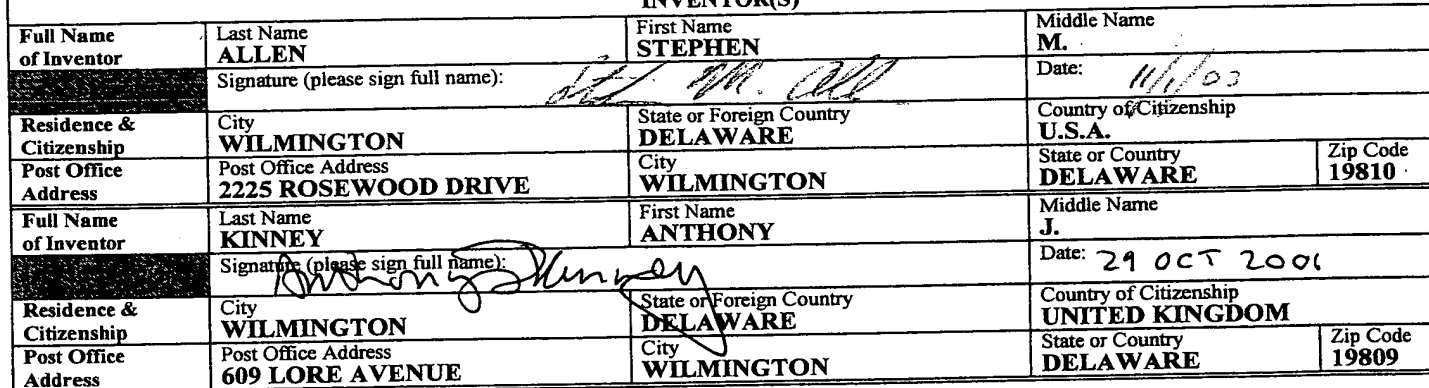 INVENTOR(S)
Full Name of Inventor Last Name ALLEN First Name STEPHEN Middle Name M.
Signature (please sign full name): M. All Date: 11/1/03
Residence & Citizenship City WILMINGTON State or Foreign Country DELAWARE Country of Citizenship U.S.A.
Post Office Address Post Office Address 2225 ROSEWOOD DRIVE City WILMINGTON State or Country DELAWARE Zip Code 19810
Full Name of Inventor Last Name KINNEY First Name ANTHONY Middle Name J.
Signature (please sign full name): Anthony J Kinney Date: 29 OCT 2001
Residence & Citizenship City WILMINGTON State or Foreign Country DELAWARE Country of Citizenship UNITED KINGDOM
Post Office Address Post Office Address 609 LORE AVENUE City WILMINGTON State or Country DELAWARE Zip Code 19809